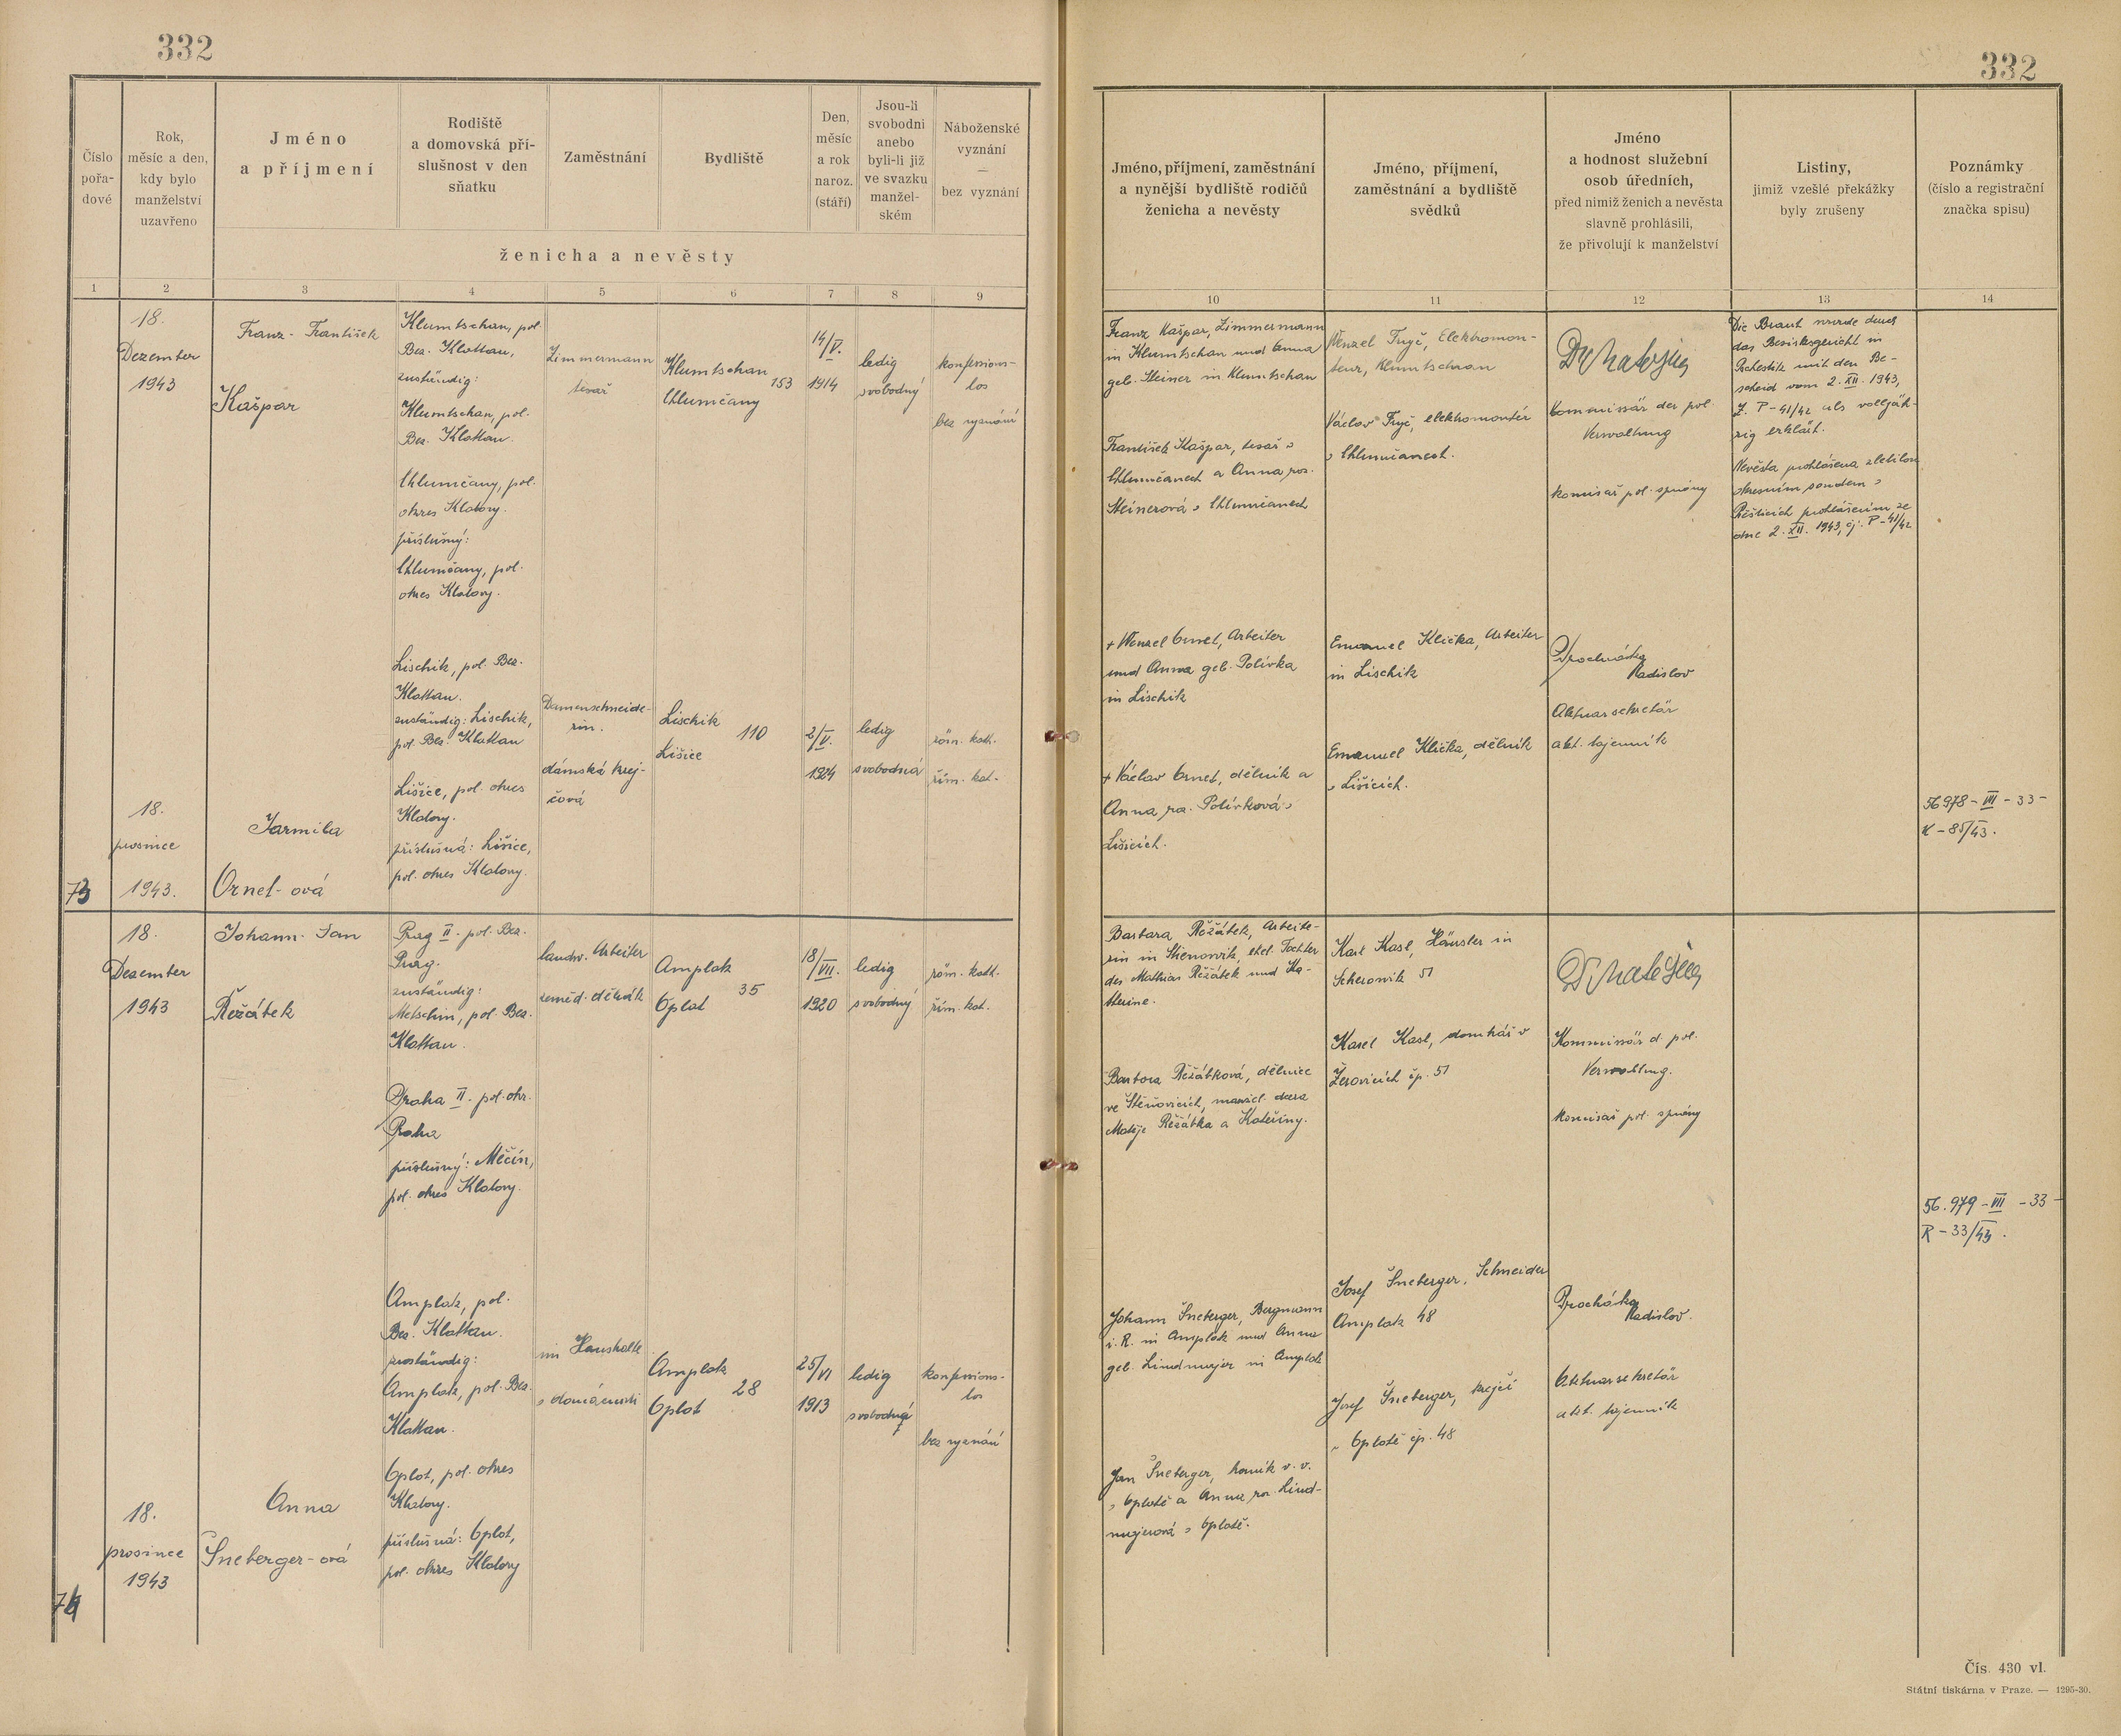 332
332
Číslo
pořa-
dové
Rok,
měsíc a den,
kdy bylo
manželství
uzavřeno
Jméno
a příjmení
Rodiště
a domovská pří-
slušnost v den
sňatku
Zaměstnání
Bydliště
Den,
měsíc
a rok
naroz.
(stáří)
Jsou-li
svobodni
anebo
byli-li již
ve svazku
manžel-
ském
Náboženské
vyznání
—
bez vyznání
ženicha a nevěsty
Jméno, příjmení, zaměstnání
a nynější bydliště rodičů
ženicha a nevěsty
Jméno, příjmení,
zaměstnání a bydliště
svědků
Jméno
a hodnost služební
osob úředních,
před nimiž ženich a nevěsta
slavně prohlásili,
že přivolují k manželství
Listiny,
jimiž vzešlé překážky
byly zrušeny
Poznámky
(číslo a registrační
značka spisu)
1 2 3 4 5 6 7 8 9
10 11 12 13 14
18.
Dezember
1943
Franz - František
Kašpar
Klumtschan, pol.
Bez. Klattau,
zuständig:
Klumtschan, pol.
Bez. Klattau.
Chlumčany, pol.
okres Klatovy.
příslušný:
Chlumčany, pol.
okres Klatovy.
Zimmermann
tesař
Klumtschan
153
Chlumčany
14/V.
1914
ledig
svobodný
konfessions-
los
bez vyznání
Franz Kašpar, Zimmermann
in Klumtschan und Anna
geb. Steiner in Klumtschan
František Kašpar, tesař v
Chlumčanech a Anna roz.
Steinerová v Chlumčanech
Wenzel Fryč, Elektromon-
teur, Klumtschan
Václav Fryč, elektromontér
v Chlumčanech.
Kommissär der pol.
Verwaltung
komisař pol. správy
Die Braut wurde durch
das Bezirksgericht in
Pschestitz mit dem Be-
scheid vom 2. XII. 1943,
Z. P-41/42 als volljäh-
rig erklärt.
Nevěsta prohlášena zletilou
okresním soudem v
Přešticích prohlášením ze
dne 2. XII. 1943, čj. P-41/42
18.
prosince
1943.
73
Jarmila
Ornet-ová
Lischitz, pol. Bez.
Klattau.
zuständig: Lischitz,
pol. Bez. Klattau
Lišice, pol. okres
Klatovy.
příslušná: Lišice,
pol. okres Klatovy.
Damenschneide-
rin.
dámská krej-
čová
Lischitz
110
Lišice
2/V.
1924
ledig
svobodná
röm. kath.
řím. kat.
+ Wenzel Ornet, Arbeiter
und Anna geb. Polívka
in Lischitz
+ Václav Ornet, dělník a
Anna roz. Polívková v
Lišicích.
Emanuel Klička, Arbeiter
in Lischitz
Emanuel Klička, dělník
v Lišicích.
Procházka
Ladislav
Aktuarsekretär
akt. tajemník
56978-III-33-
K-85/43.
18.
Dezember
1943
Johann - Jan
Řežátek
Prag II. pol. Bez.
Prag.
zuständig:
Metschin, pol. Bez.
Klattau.
Praha II. pol. okr.
Praha
příslušný: Měčín,
pol. okres Klatovy.
landw. Arbeiter
zeměd. dělník
Amplatz
35
Oplot
18/VII.
1920
ledig
svobodný
röm. kath.
řím. kat.
Barbara Řežátek, Arbeite-
rin in Stienowitz, ehel. Tochter
des Mathias Řežátek und Ka-
therine.
Barbora Řežátková, dělnice
ve Štěnovicích, manžel. dcera
Matěje Řežátka a Kateřiny.
Karl Kasl, Häusler in
Scherowitz 51
Karel Kasl, domkář v
Žerovicích čp. 51
Kommissär d. pol.
Verwaltung.
komisař pol. správy
56.979-III-33-
R-33/43.
18.
prosince
1943
74
Anna
Šneberger-ová
Amplatz, pol.
Bez. Klattau.
zuständig:
Amplatz, pol. Bez.
Klattau.
Oplot, pol. okres
Klatovy.
příslušná: Oplot,
pol. okres Klatovy
im Haushalte
v domácnosti
Amplatz
28
Oplot
25/VI
1913
ledig
svobodná
konfessions-
los
bez vyznání
Johann Šneberger, Bergmann
i. R. in Amplatz und Anna
geb. Lindmajer in Amplatz
Jan Šneberger, horník v. v.
v Oplotě a Anna roz. Lind-
majerová v Oplotě.
Josef Šneberger, Schneider
Amplatz 48
Josef Šneberger, krejčí
v Oplotě čp. 48
Procházka
Ladislav.
Aktuarsekretär
akt. tajemník
Čís. 430 vl.
Státní tiskárna v Praze. — 1295-30.